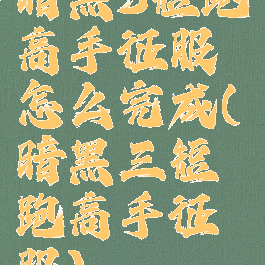 暗黑3短跑
高手征服
怎么完成(
暗黑三短
跑高手征
服)